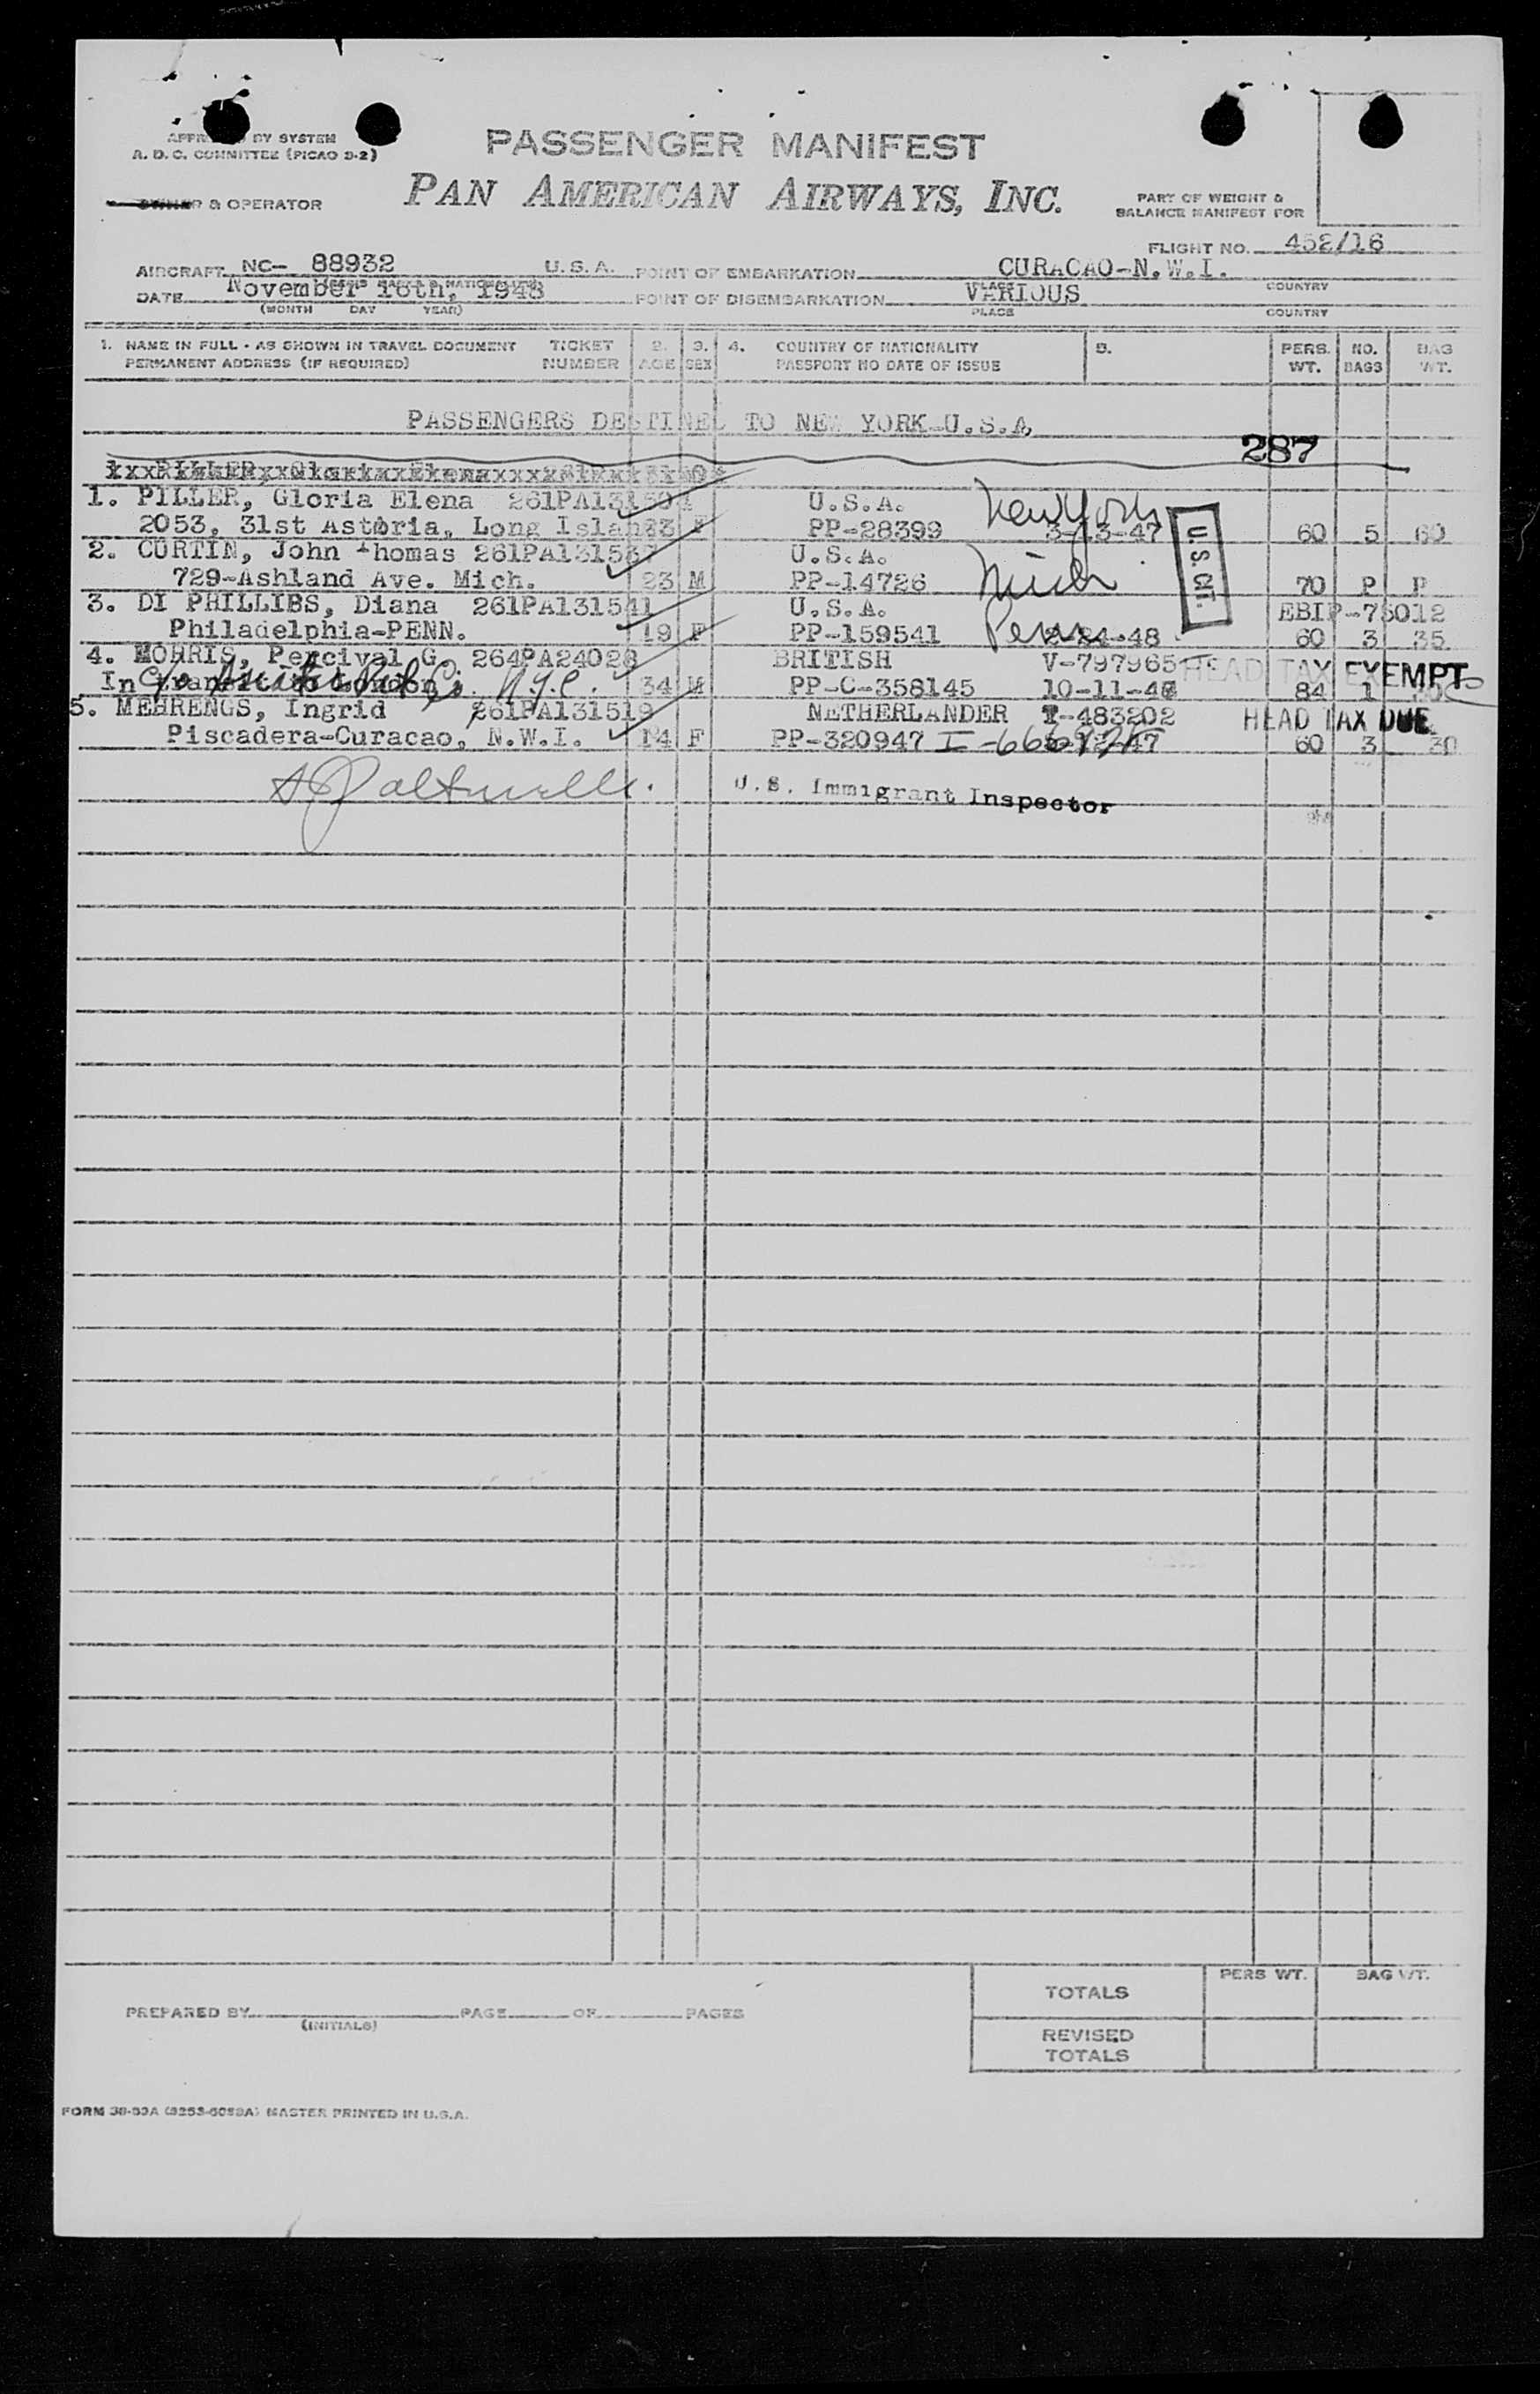 BY SYSTEM
A. D. C. COMMITTEE (PICAO 9-2)
PASSENGER MANIFEST
PAN AMERICAN AIRWAYS, INC.
& OPERATOR
PART OF WEIGHT &
BALANCE MANIFEST FOR
FLIGHT NO. 452/16
AIRCRAFT NC- 88932 U.S.A. POINT OF EMBARKATION CURACAO-N.W.I.
DATE November 16th, 1948 POINT OF DISEMBARKATION VARIOUS
(MONTH DAY YEAR) PLACE COUNTRY
1. NAME IN FULL - AS SHOWN IN TRAVEL DOCUMENT TICKET 2. 3. 4. COUNTRY OF NATIONALITY 5. PERS. NO. BAG
PERMANENT ADDRESS (IF REQUIRED) NUMBER AGE SEX PASSPORT NO DATE OF ISSUE WT. BAGS WT.
PASSENGERS DESTINED TO NEW YORK-U.S.A
287
1. PILLER, Gloria Elena U.S.A. New York
2053, 31st Astoria, Long Island F PP-28399 3-13-47 60 5 60
2. CURTIN, John Thomas U.S.A.
729-Ashland Ave. Mich. 23 M PP-14726 Mich. 70 P P
U.S. CIT.
3. DI PHILLIBS, Diana 261PA131541 U.S.A. EBIP-75012
Philadelphia-PENN. 19 F PP-159541 Penn. 2-24-48 60 3 35
4. MORRIS, Percival G. 264PA24028 BRITISH V-797965 HEAD TAX EXEMPT
In N.Y.C. 34 M PP-C-358145 84 1
5. MEHRENGS, Ingrid 261PA131519 NETHERLANDER HEAD TAX DUE
Piscadera-Curacao, N.W.I. 14 F PP-320947 60 3 30
U.S. Immigrant Inspector
TOTALS PERS WT. BAG WT.
PREPARED BY PAGE OF PAGES
(INITIALS)
REVISED
TOTALS
FORM MASTER PRINTED IN U.S.A.